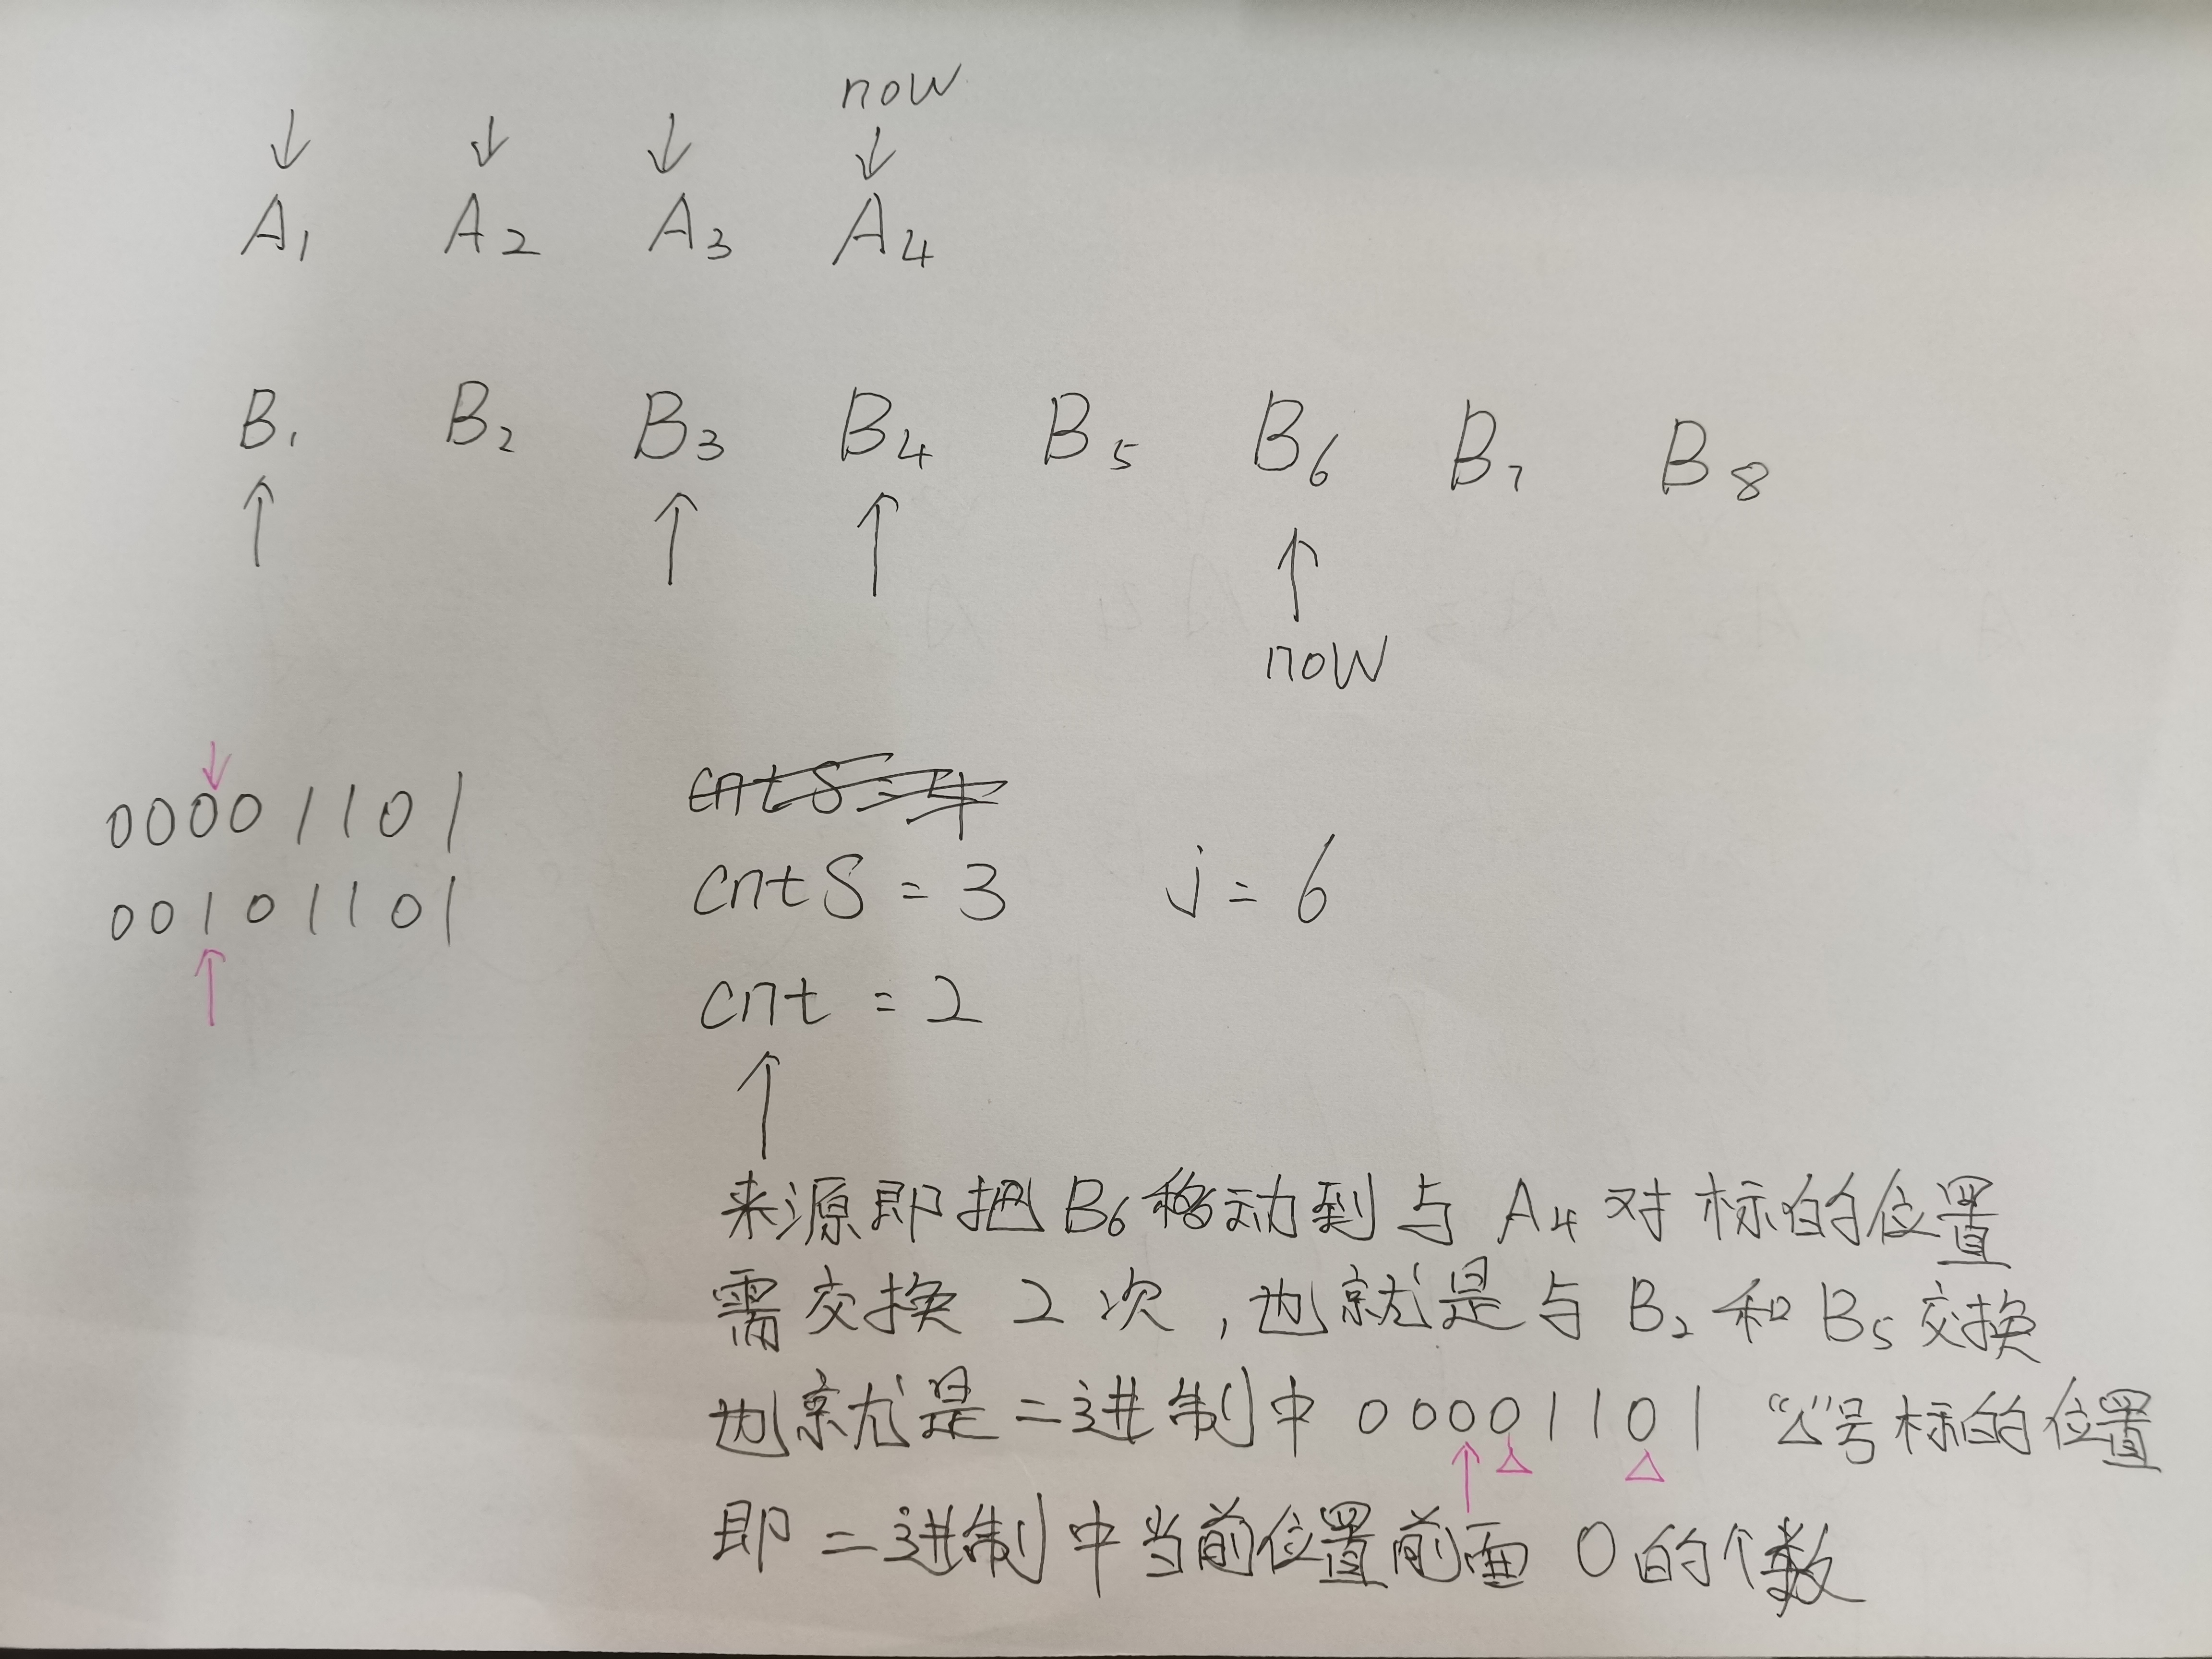 now
↓ ↓ ↓ ↓
A₁ A₂ A₃ A₄
B₁ B₂ B₃ B₄ B₅ B₆ B₇ B₈
↑ ↑ ↑ ↑
now
↓
00001101
00101101
↑
cntS=4
cntS=3 j=6
cnt=2
↑
来源即把B₆移动到与A₄对标的位置
需交换2次,也就是与B₂和B₅交换
也就是二进制中00001101 “△”号标的位置
↑ △ △
即二进制中当前位置前面0的个数